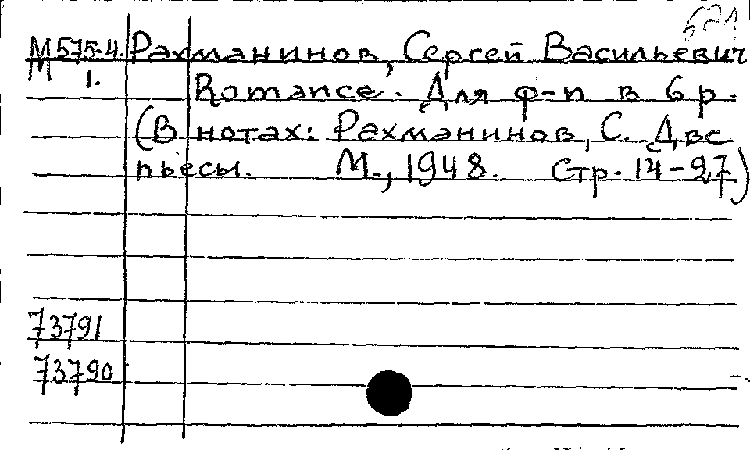 621
М575-4. Рахманинов, Сергей Васильевич
М 1. Romance. Для ф-п в 6 р.
(В нотах: Рахманинов, С. Две
пьесы. М., 1948. Стр. 14-27)
73791
73790